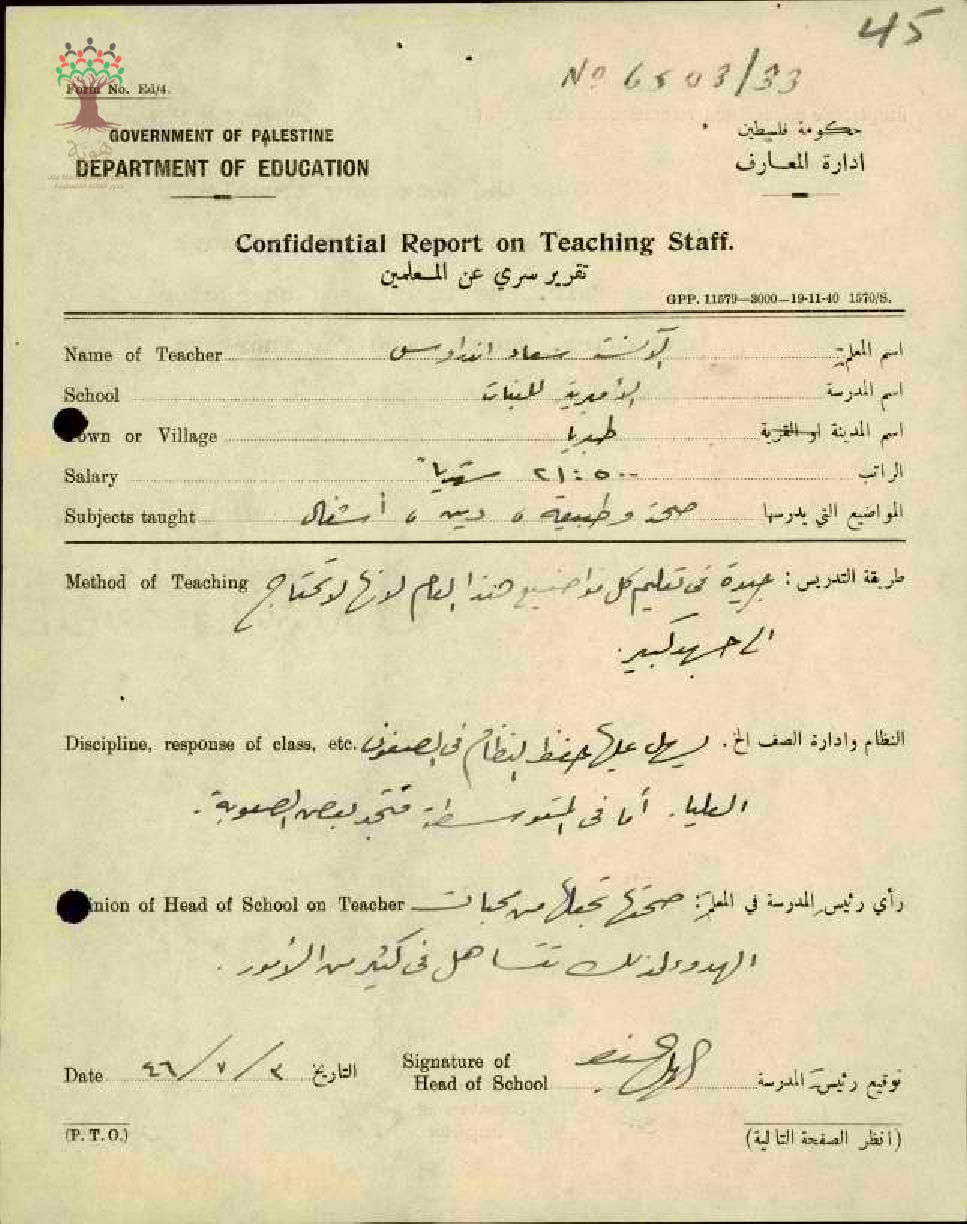 45
No 6503/33
Form No. Ed/4.
GOVERNMENT OF PALESTINE
حكومة فلسطين
DEPARTMENT OF EDUCATION
ادارة المعارف
Confidential Report on Teaching Staff.
تقرير سري عن المعلمين
GPP. 11579—3000—19-11-40 1570/S.
Name of Teacher الآنسة سعاد اندراوس اسم المعلمة
School الأميرية للبنات اسم المدرسة
Town or Village طبريا اسم المدينة او القرية
Salary ٢١:٥٠٠ شهرياً الراتب
Subjects taught صحة وطبيعة، دين، أشغال المواضيع التي يدرسها
Method of Teaching طريقة التدريس: جيدة في تعليم كل مواضيع هذا العام لانها لا تحتاج
الى جهد كبير.
Discipline, response of class, etc. النظام وادارة الصف الخ. يسهل عليها حفظ النظام في الصفوف
العليا. أما في المتوسطة فتجد بعض الصعوبة.
Opinion of Head of School on Teacher رأي رئيسة المدرسة في المعلمة: صحتها تجعلها من محبات
الهدوء لذلك تتساهل في كثير من الأمور.
Date ٣/٧/٤٦ التاريخ Signature of
Head of School توقيع رئيسة المدرسة
(P. T. O.) (انظر الصفحة التالية)